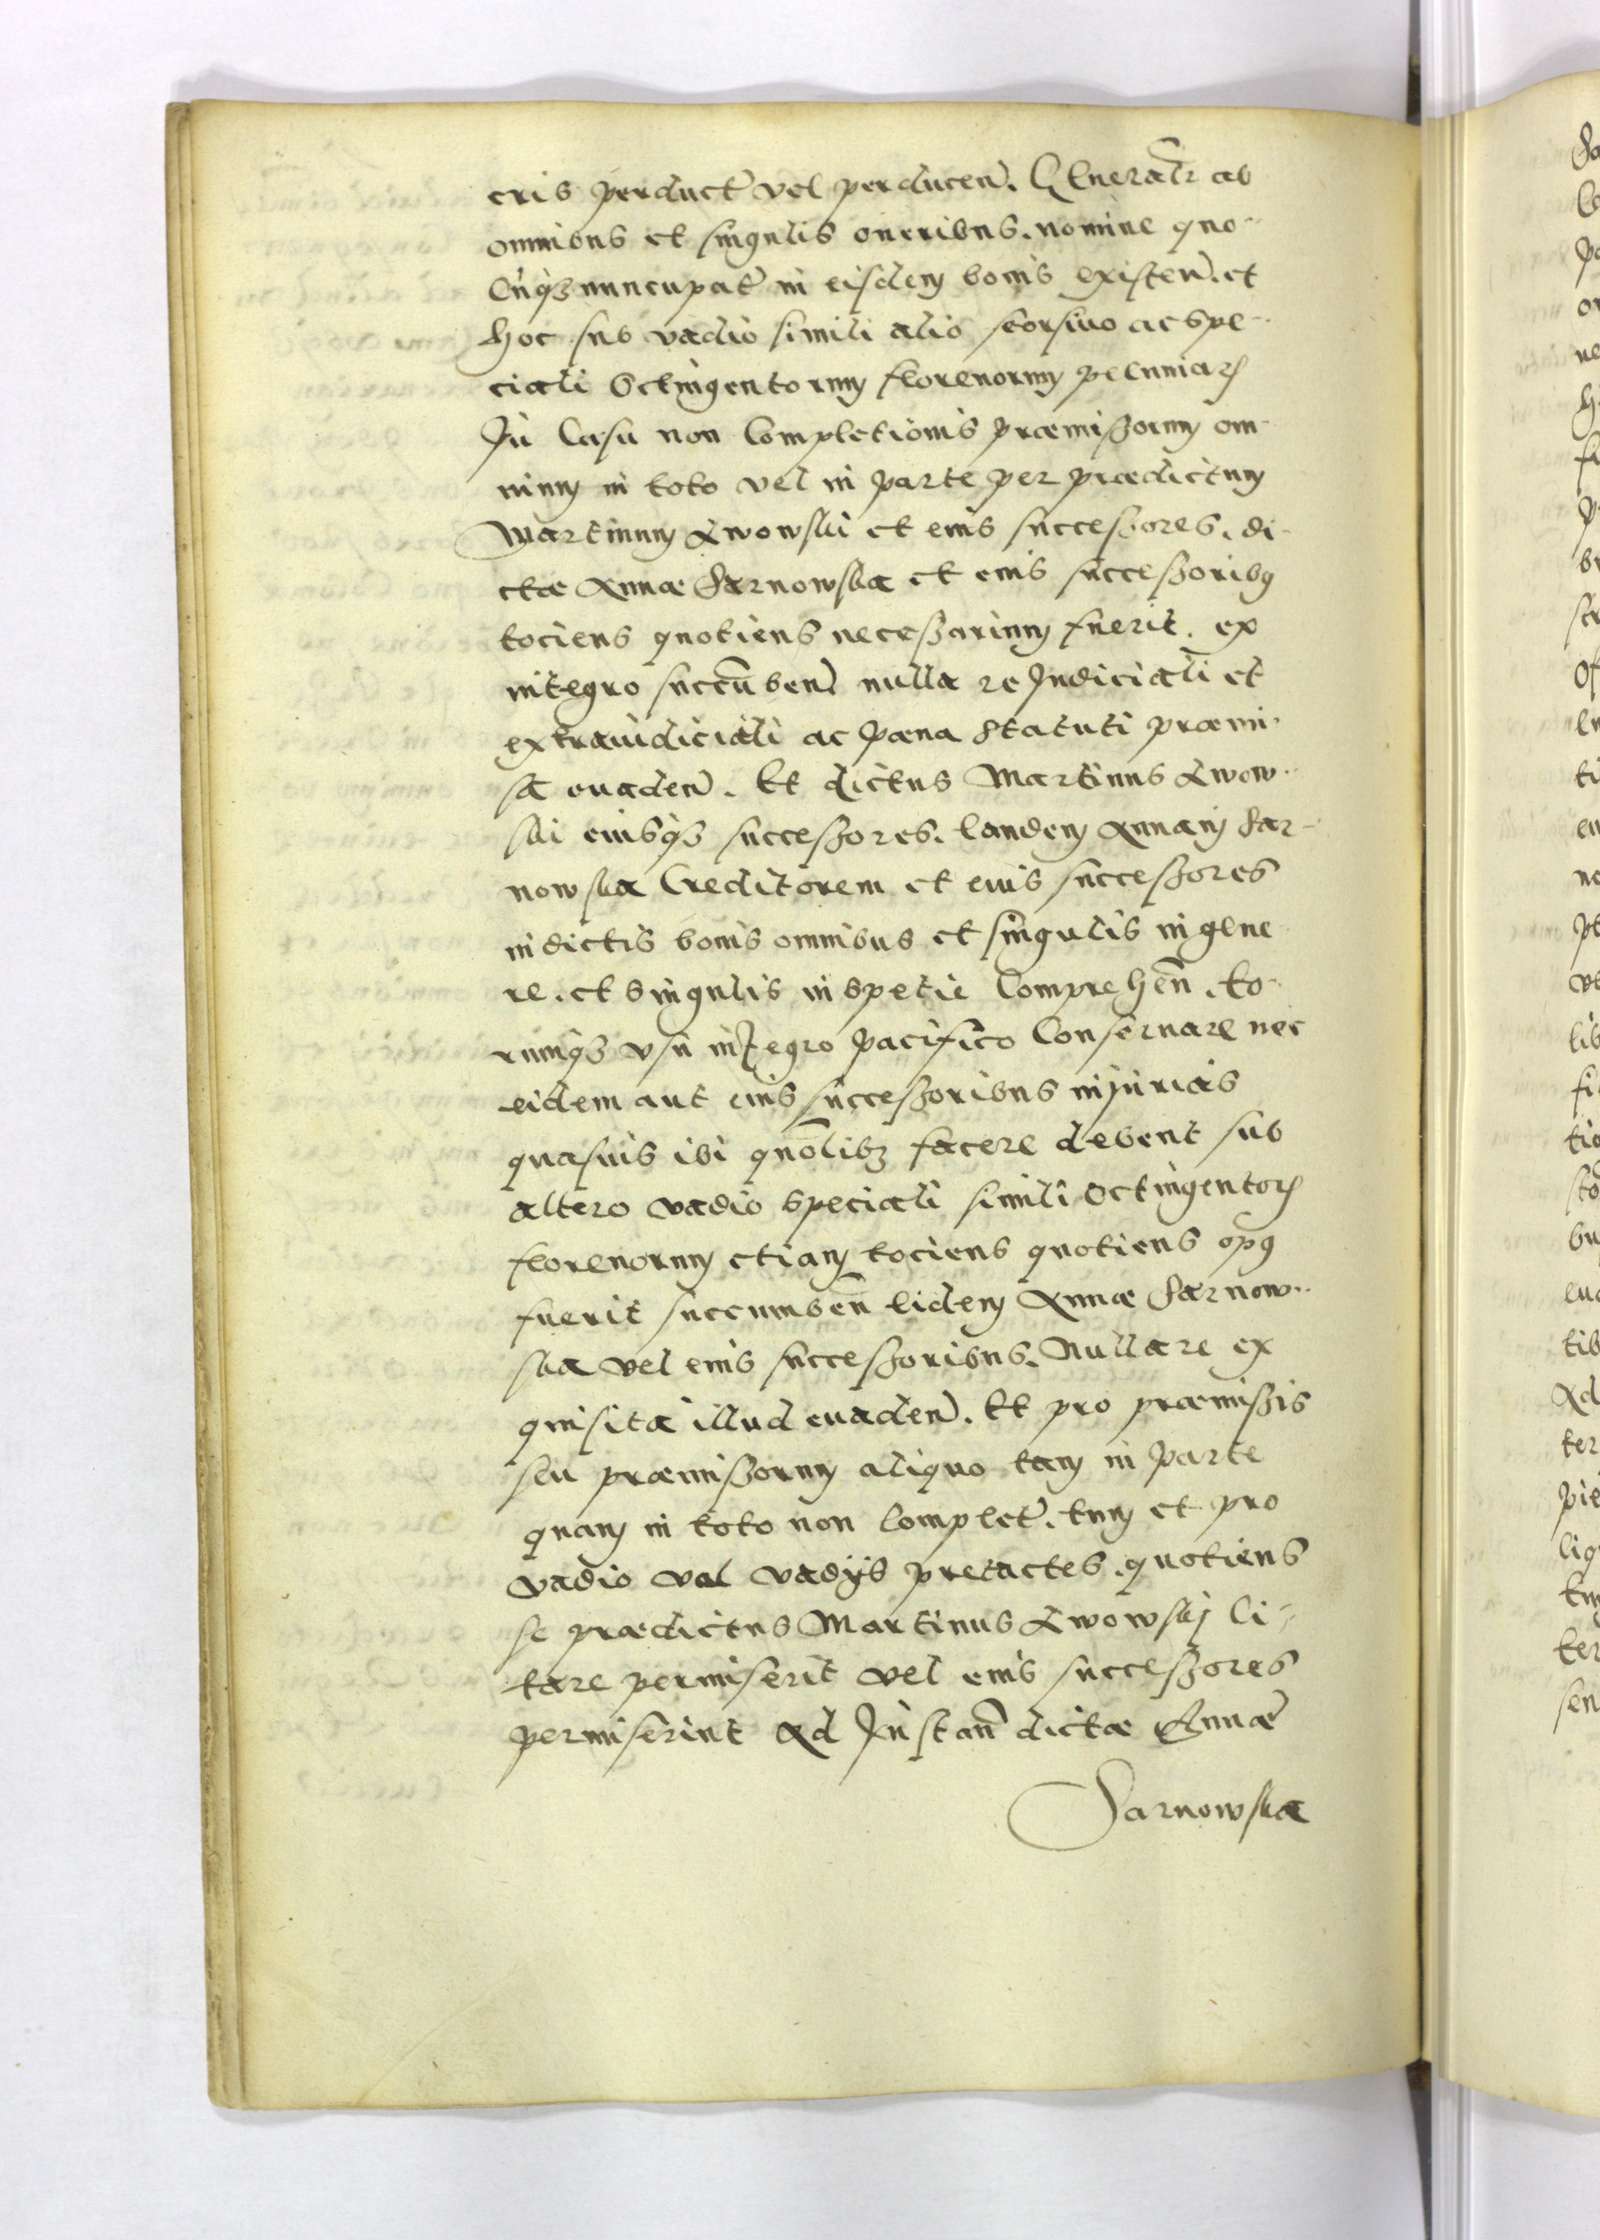 cris perduct vel perducen. Generalr ab
omnibus et singulis oneribus, nomine quo-
cuqz nuncupat in eisdem bonis existen. et
hoc sub vadio simili alio seorsivo ac spe-
ciali Octingentorum florenorum pecuniar
In Casu non Completionis præmissorum om-
nium in toto vel in parte per prædictum
Martinum Lwowski et eius successores, di-
ctæ Annæ Sarnowska et eius successoribus
tociens quotiens necessarium fuerit, ex
integro succuben nulla re Judiciali et
extraiudiciali ac pæna Statuti præmi-
sa euaden. Et dictus Martinus Lwow-
ski eiusqz successores, eandem Annam Sar-
nowska Creditorem et eius successores
in dictis bonis omnibus et singulis in gene
re, et singulis in spetie Comprehen. Eo-
rumqz usu integro pacifico Conservare nec
eidem aut eius successoribus iniurias
quasuis ibi quolibz facere debent sub
altero vadio speciali simili Octingentor
florenorum etiam tociens quotiens opus
fuerit succumben eidem Annæ Sarnow-
ska vel eius successoribus. Nulla re ex
quisita illud euaden. Et pro præmissis
seu præmissorum aliquo tam in parte
quam in toto non complet. tum et pro
vadio vel vadijs pretactes, quotiens
se prædictus Martinus Lwowskj Ci-
tare permiserit vel eius successores
permiserint ad Instan dictæ Annæ
Sarnowska